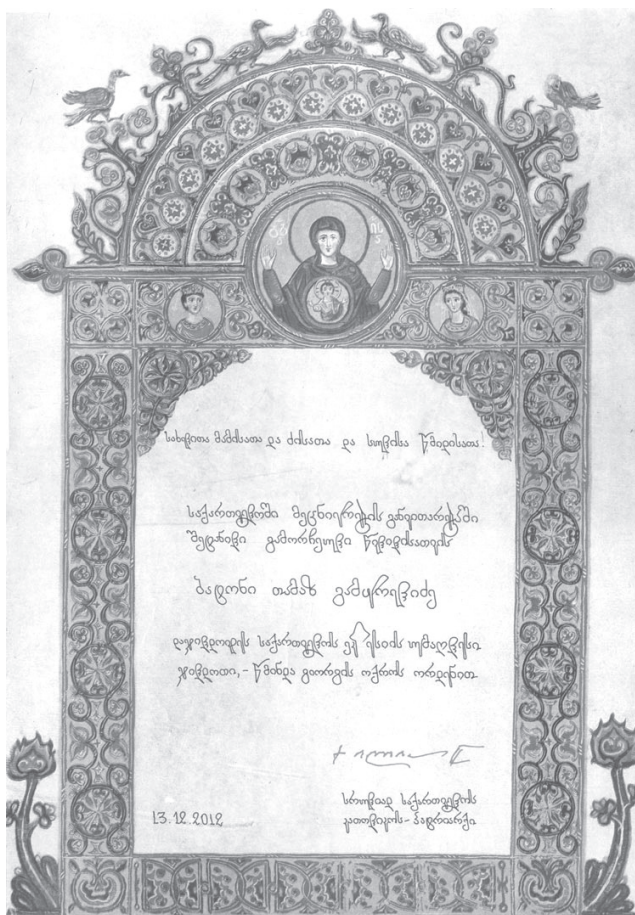 სახელითა მამისათა და ძისათა და სულისა წმიდისათა!
საქართველოში მეცნიერების განვითარებაში
შეტანილი გამორჩეული წვლილისათვის
ბატონი თამაზ გამყრელიძე
დაჯილდოვდეს საქართველოს ეკლესიის უმაღლესი
ჯილდოთი, - წმინდა გიორგის ოქროს ორდენით
სრულიად საქართველოს
კათოლიკოს - პატრიარქი
13.12.2012